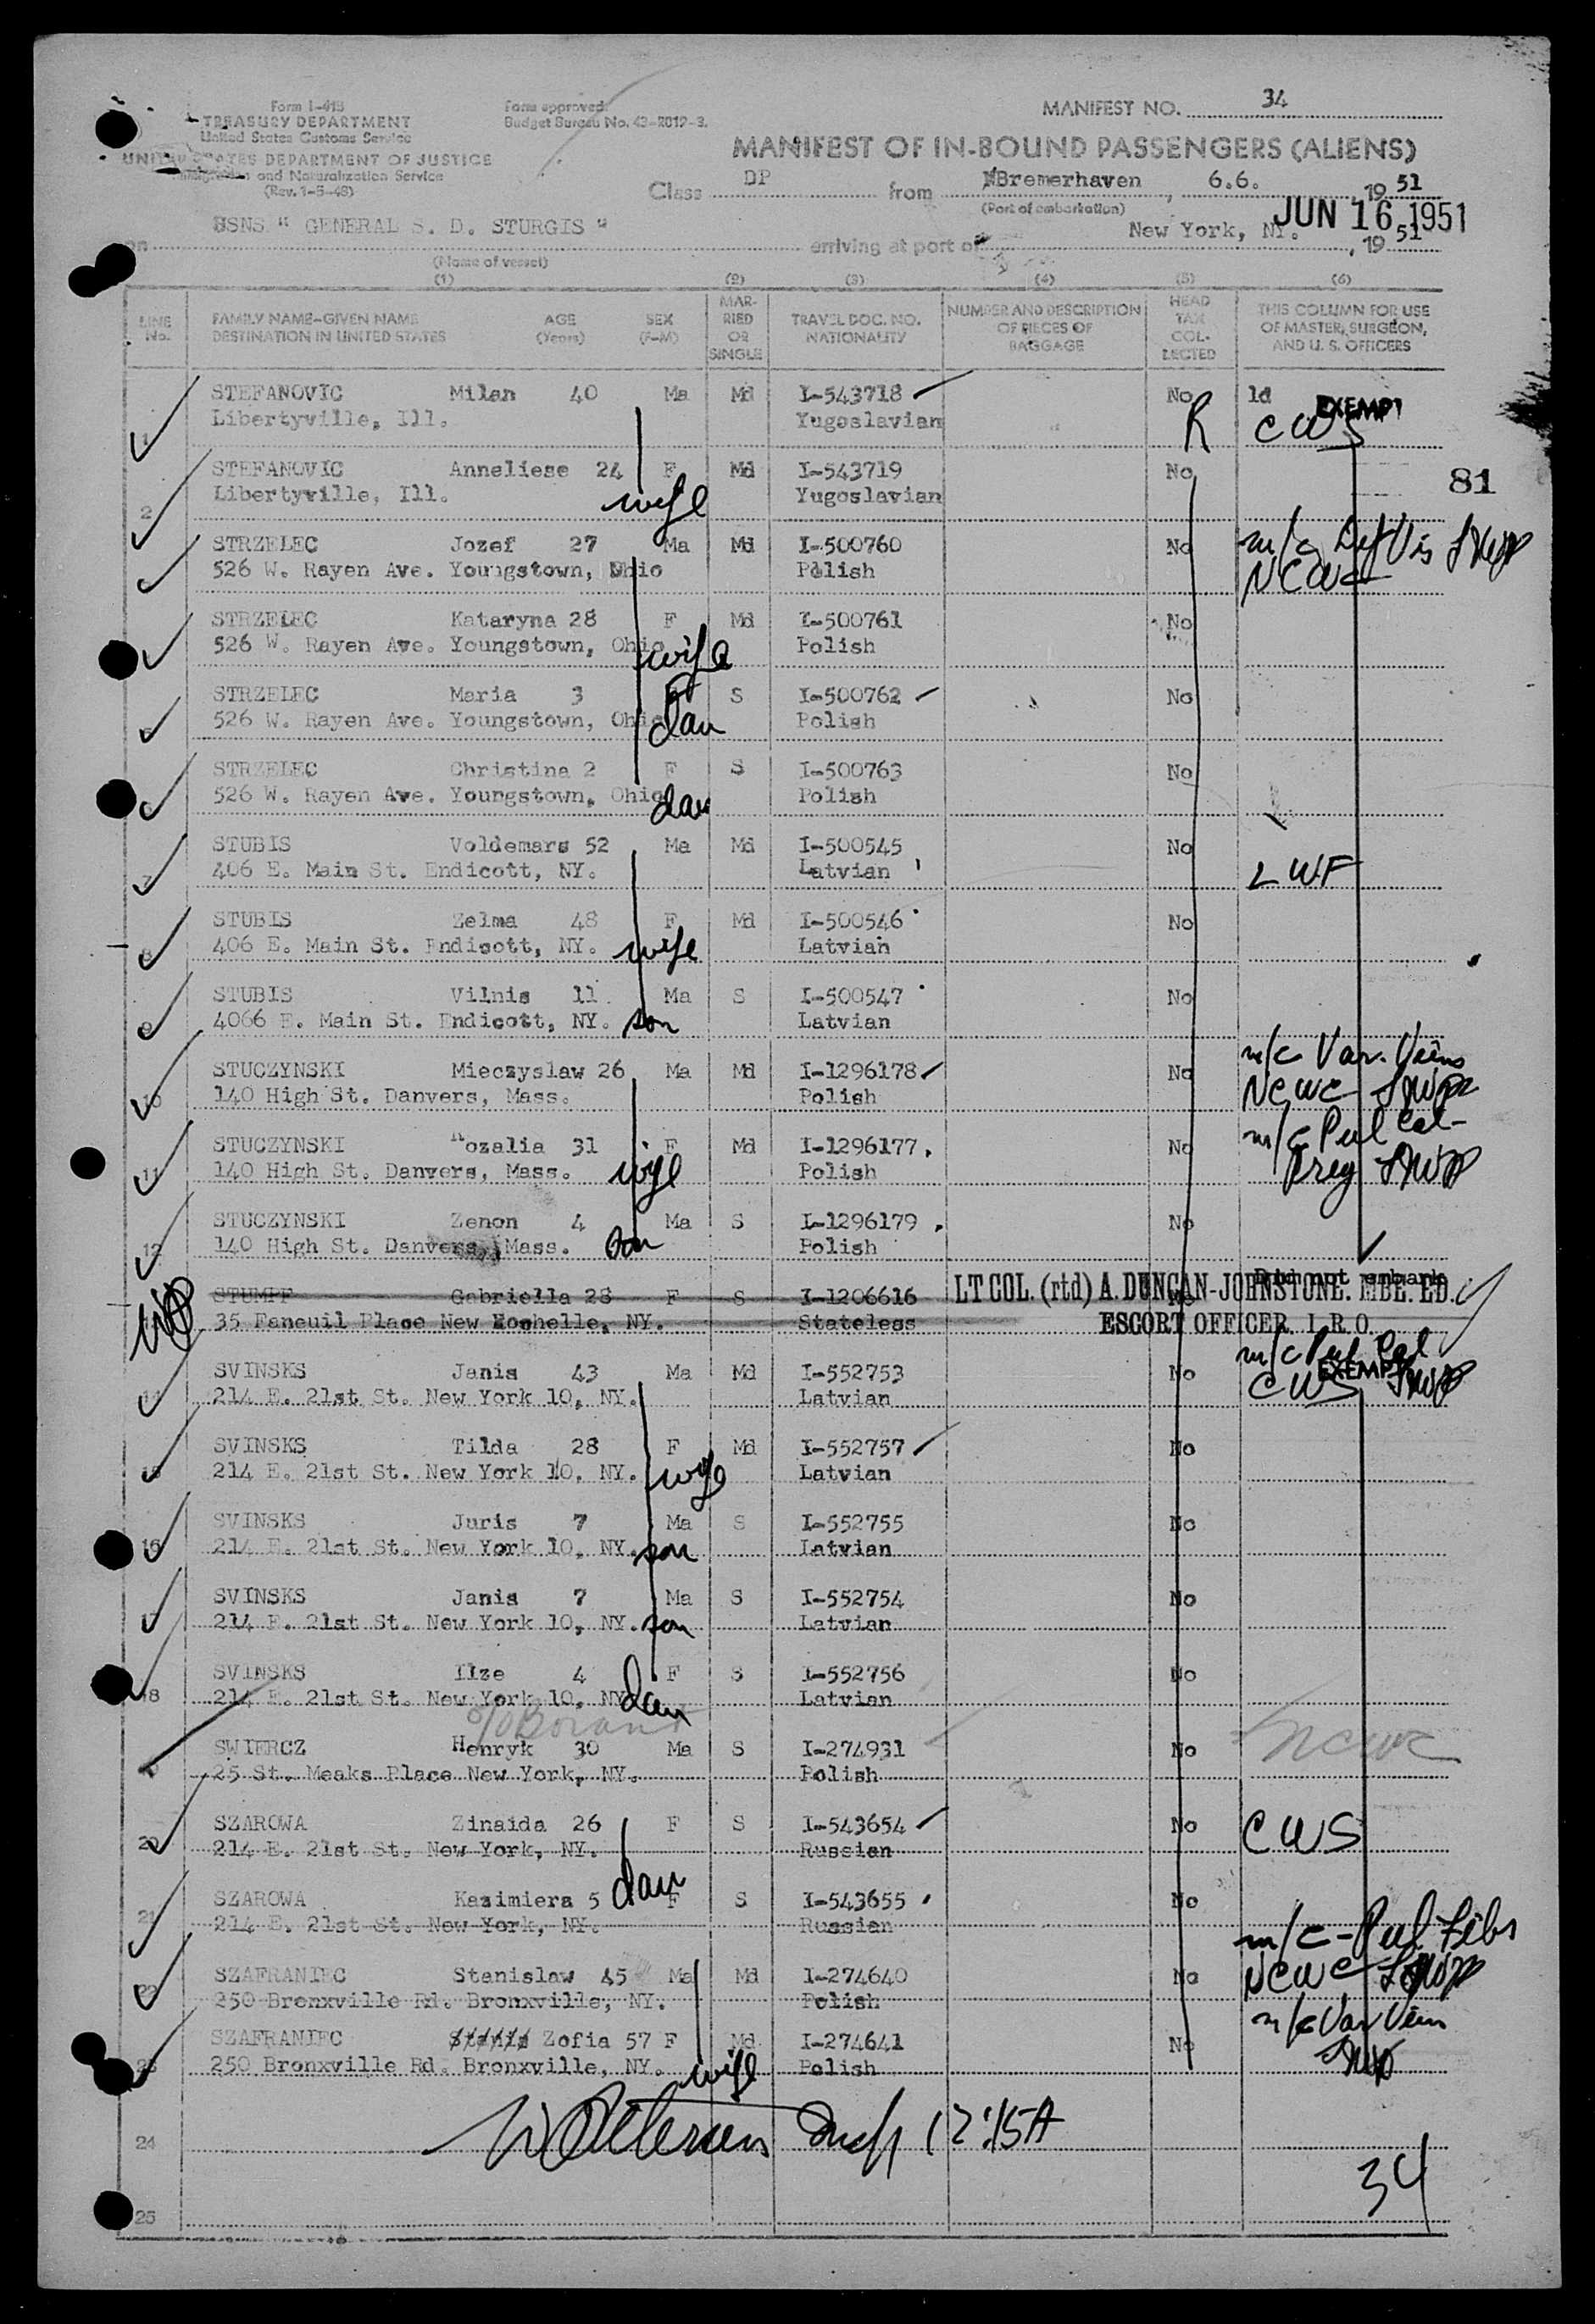 Form I-415
TREASURY DEPARTMENT
United States Customs Service
UNITED STATES DEPARTMENT OF JUSTICE
Immigration and Naturalization Service
(Rev. 1-5-48)
Form approved.
Budget Bureau No. 43-R012-3.
MANIFEST NO. 34
MANIFEST OF IN-BOUND PASSENGERS (ALIENS)
Class DP from Bremerhaven, 6.6., 19 51
(Port of embarkation)
on USNS " GENERAL S. D. STURGIS " arriving at port of New York, NY. JUN 16 1951, 19 51
(Name of vessel)
(1) (2) (3) (4) (5) (6)
LINE No. FAMILY NAME-GIVEN NAME DESTINATION IN UNITED STATES AGE (Years) SEX (F-M) MARRIED OR SINGLE TRAVEL DOC. NO. NATIONALITY NUMBER AND DESCRIPTION OF PIECES OF BAGGAGE HEAD TAX COLLECTED THIS COLUMN FOR USE OF MASTER, SURGEON, AND U. S. OFFICERS
1 STEFANOVIC Milan 40 Ma Md I-543718 No ld EXEMPT
Libertyville, Ill. Yugoslavian R CWS
STEFANOVIC Anneliese 24 F Md I-543719 No 81
2 Libertyville, Ill. wife Yugoslavian
STRZELEC Jozef 27 Ma Md I-500760 No m/c Def Vis
526 W. Rayen Ave. Youngstown, Ohio Polish NCWC
STRZELEC Kataryna 28 F Md I-500761 No
526 W. Rayen Ave. Youngstown, Ohio wife Polish
STRZELEC Maria 3 F S I-500762 No
526 W. Rayen Ave. Youngstown, Ohio dau Polish
STRZELEC Christina 2 F S I-500763 No
526 W. Rayen Ave. Youngstown, Ohio dau Polish
STUBIS Voldemars 52 Ma Md I-500545 No
7 406 E. Main St. Endicott, NY. Latvian LWF
STUBIS Zelma 48 F Md I-500546 No
8 406 E. Main St. Endicott, NY. wife Latvian
STUBIS Vilnis 11 Ma S I-500547 No
9 4066 E. Main St. Endicott, NY. son Latvian
STUCZYNSKI Mieczyslaw 26 Ma Md I-1296178 No m/c Var. Veins
10 140 High St. Danvers, Mass. Polish NCWC
STUCZYNSKI Rozalia 31 F Md I-1296177 No m/c Pul Cal-
11 140 High St. Danvers, Mass. wife Polish Preg
STUCZYNSKI Zenon 4 Ma S I-1296179 No
12 140 High St. Danvers, Mass. son Polish
STUMPF Gabriella 28 F S I-1206616 No Did not embark
LT COL. (rtd) A. DUNCAN-JOHNSTONE. MBE. ED.
35 Faneuil Place New Rochelle, NY. Stateless ESCORT OFFICER I. R. O.
SVINSKS Janis 43 Ma Md I-552753 No m/c Pul Cal EXEMPT
14 214 E. 21st St. New York 10, NY. Latvian CWS
SVINSKS Tilda 28 F Md I-552757 No
15 214 E. 21st St. New York 10, NY. wife Latvian
SVINSKS Juris 7 Ma S I-552755 No
16 214 E. 21st St. New York 10, NY. son Latvian
SVINSKS Janis 7 Ma S I-552754 No
17 214 E. 21st St. New York 10, NY. son Latvian
SVINSKS Ilze 4 F S I-552756 No
18 214 E. 21st St. New York 10, NY dau Latvian
SWIERCZ Henryk 30 Ma S I-274931 No NCWC
25 St. Meaks Place New York, NY. Polish
SZAROWA Zinaida 26 F S I-543654 No CWS
20 214 E. 21st St. New York, NY. Russian
SZAROWA Kazimiera 5 dau F S I-543655 No
21 214 E. 21st St. New York, NY. Russian
SZAFRANIEC Stanislaw 45 Ma Md I-274640 No m/c-Pul Fibs
22 250 Bronxville Rd. Bronxville, NY. Polish NCWC
SZAFRANIEC Zofia 57 F Md I-274641 No m/c Var Vein
23 250 Bronxville Rd. Bronxville, NY. wife Polish
24 Insp 12:15A
34
25